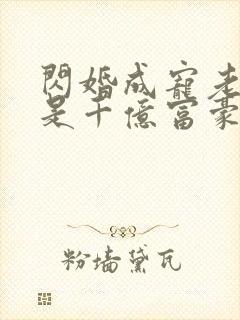 閃婚成寵老
是千億富豪
粉墙黛瓦